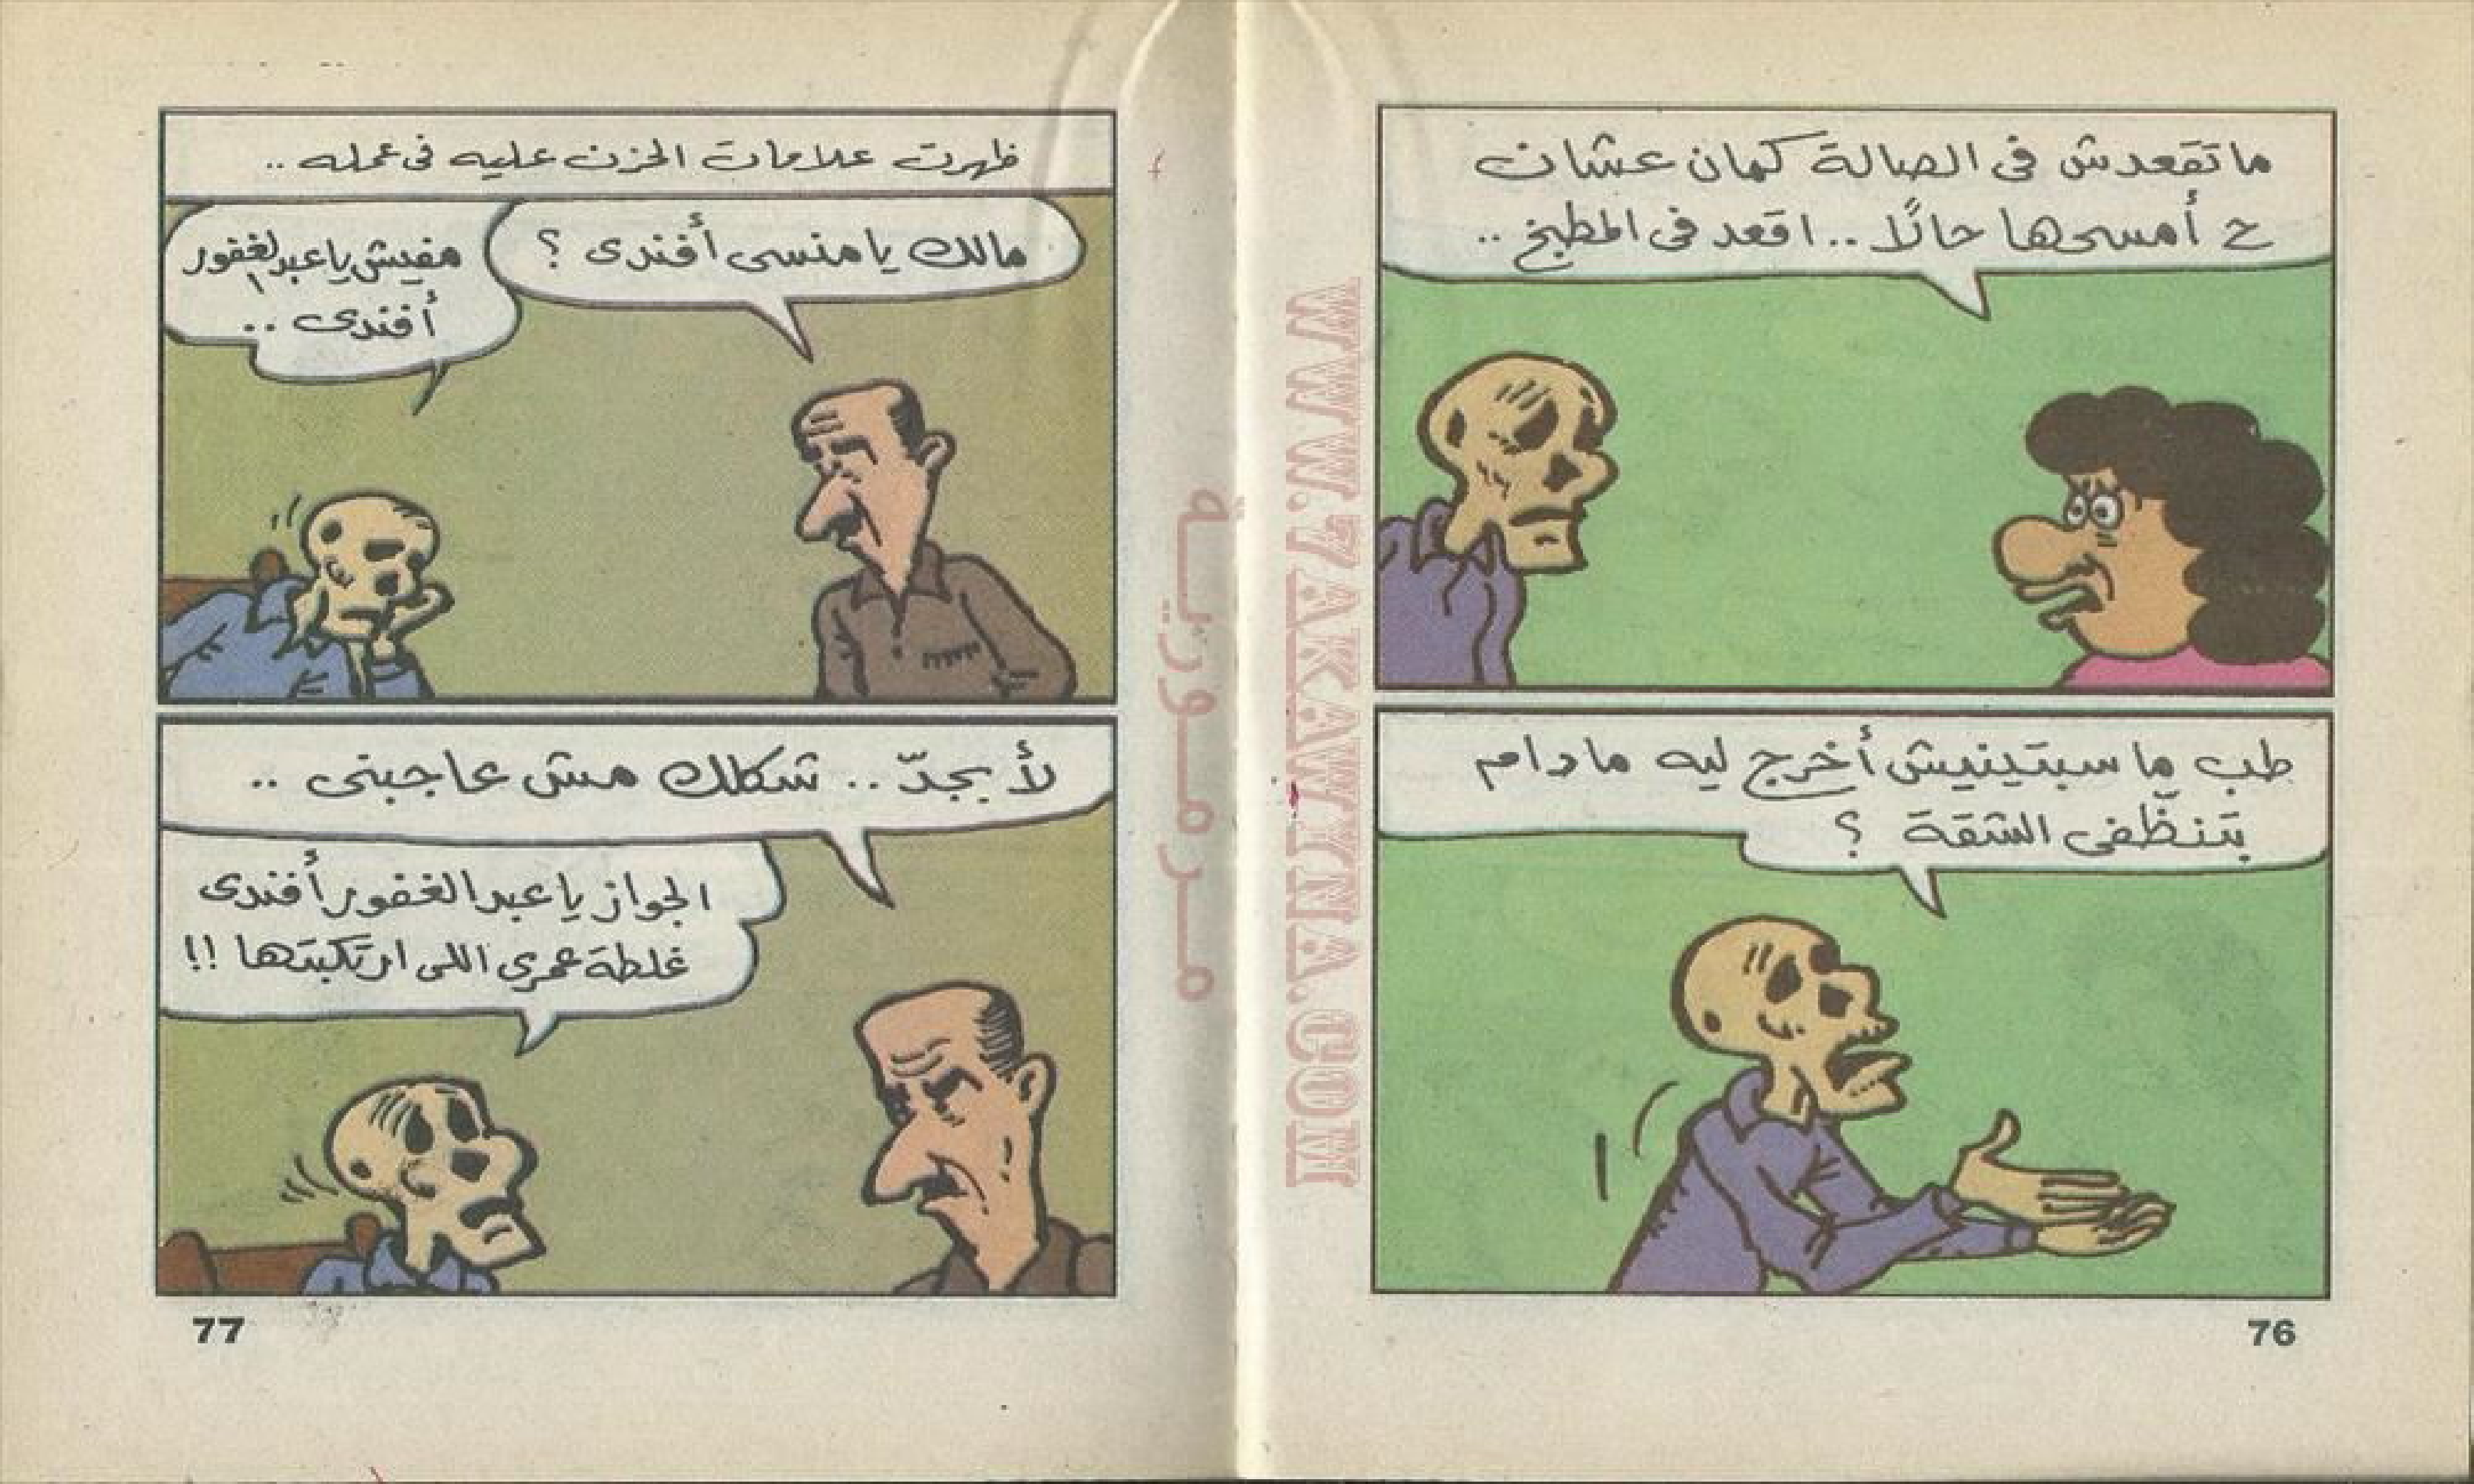 ما تقعدش فى الصالة كمان عشان
ح أمسحها حالًا .. اقعد فى المطبخ ..
طب ما سبتينيش أخرج ليه مادام
بتنظّفى الشقة ؟
76
ظهرت علامات الحزن عليه فى عمله ..
مالك يا منسى أفندى ؟
مفيش يا عبد الغفور
أفندى ..
لأ بجدّ .. شكلك مش عاجبنى ..
الجواز يا عبد الغفور أفندى
غلطة عمرى اللى ارتكبتها !!
77
WWW.7AKAWINA.COM
مرمورية